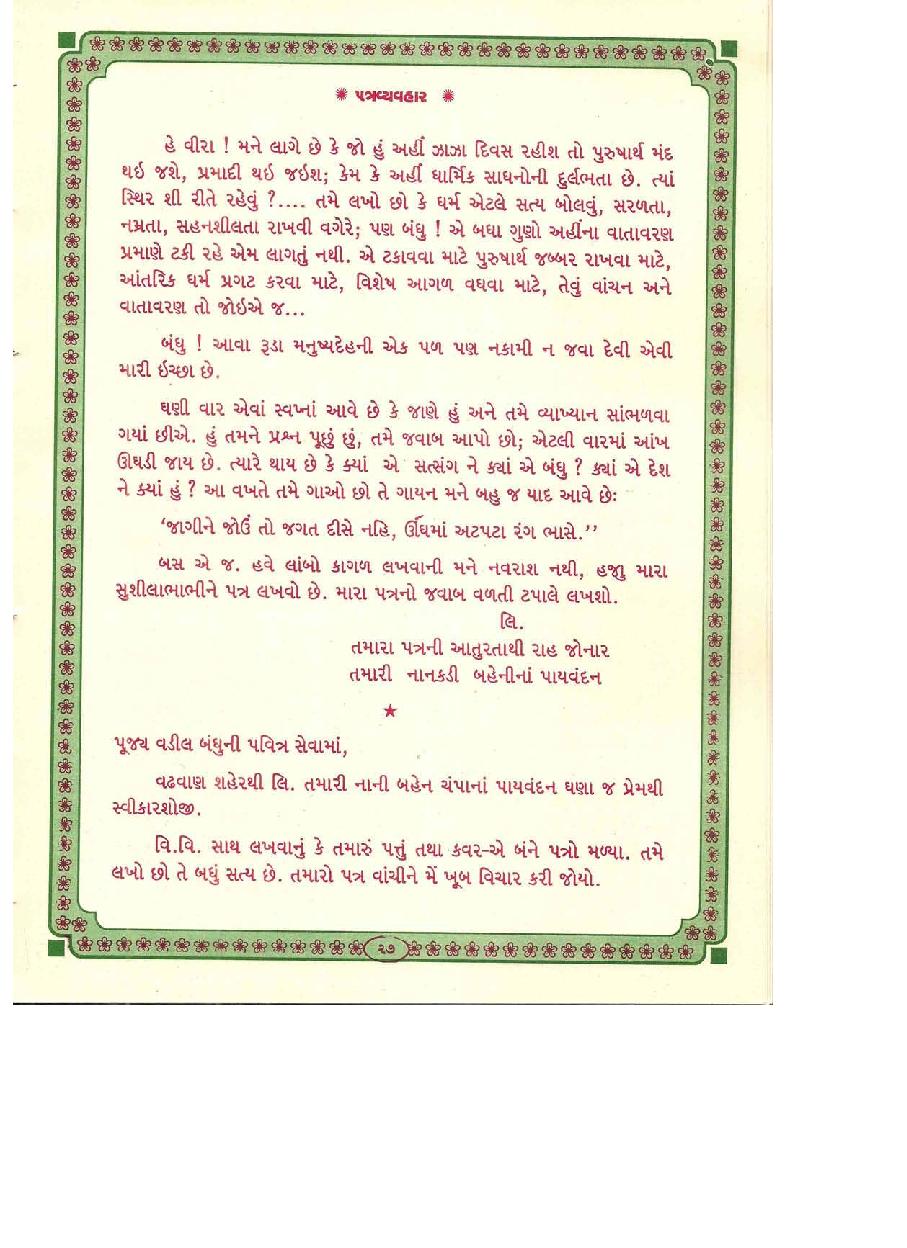 પત્રવ્યવહાર
હે વીરા ! મને લાગે છે કે જો હું અહીં ઝાઝા દિવસ રહીશ તો પુરુષાર્થ મંદ
થઇ જશે, પ્રમાદી થઇ જઇશ; કેમ કે અહીં ધાર્મિક સાધનોની દુર્લભતા છે. ત્યાં
સ્થિર શી રીતે રહેવું ?.... તમે લખો છો કે ધર્મ એટલે સત્ય બોલવું, સરળતા,
નમ્રતા, સહનશીલતા રાખવી વગેરે; પણ બંધુ ! એ બધા ગુણો અહીંના વાતાવરણ
પ્રમાણે ટકી રહે એમ લાગતું નથી. એ ટકાવવા માટે પુરુષાર્થ જબ્બર રાખવા માટે,
આંતરિક ધર્મ પ્રગટ કરવા માટે, વિશેષ આગળ વધવા માટે, તેવું વાંચન અને
વાતાવરણ તો જોઇએ જ...
બંધુ ! આવા રૂડા મનુષ્યદેહની એક પળ પણ નકામી ન જવા દેવી એવી
મારી ઇચ્છા છે.
ઘણી વાર એવાં સ્વપ્નાં આવે છે કે જાણે હું અને તમે વ્યાખ્યાન સાંભળવા
ગયાં છીએ. હું તમને પ્રશ્ન પૂછું છું, તમે જવાબ આપો છો; એટલી વારમાં આંખ
ઊઘડી જાય છે. ત્યારે થાય છે કે ક્યાં એ સત્સંગ ને ક્યાં એ બંધુ ? ક્યાં એ દેશ
ને ક્યાં હું ? આ વખતે તમે ગાઓ છો તે ગાયન મને બહુ જ યાદ આવે છેઃ
‘જાગીને જોઉં તો જગત દીસે નહિ, ઊંઘમાં અટપટા રંગ ભાસે.’’
બસ એ જ. હવે લાંબો કાગળ લખવાની મને નવરાશ નથી, હજી મારા
સુશીલાભાભીને પત્ર લખવો છે. મારા પત્રનો જવાબ વળતી ટપાલે લખશો.
લિ.
તમારા પત્રની આતુરતાથી રાહ જોનાર
તમારી નાનકડી બહેનીનાં પાયવંદન
પૂજ્ય વડીલ બંધુની પવિત્ર સેવામાં,
વઢવાણ શહેરથી લિ. તમારી નાની બહેન ચંપાનાં પાયવંદન ઘણા જ પ્રેમથી
સ્વીકારશોજી.
વિ.વિ. સાથ લખવાનું કે તમારું પત્તું તથા કવર-એ બંને પત્રો મળ્યા. તમે
લખો છો તે બધું સત્ય છે. તમારો પત્ર વાંચીને મેં ખૂબ વિચાર કરી જોયો.
૨૭